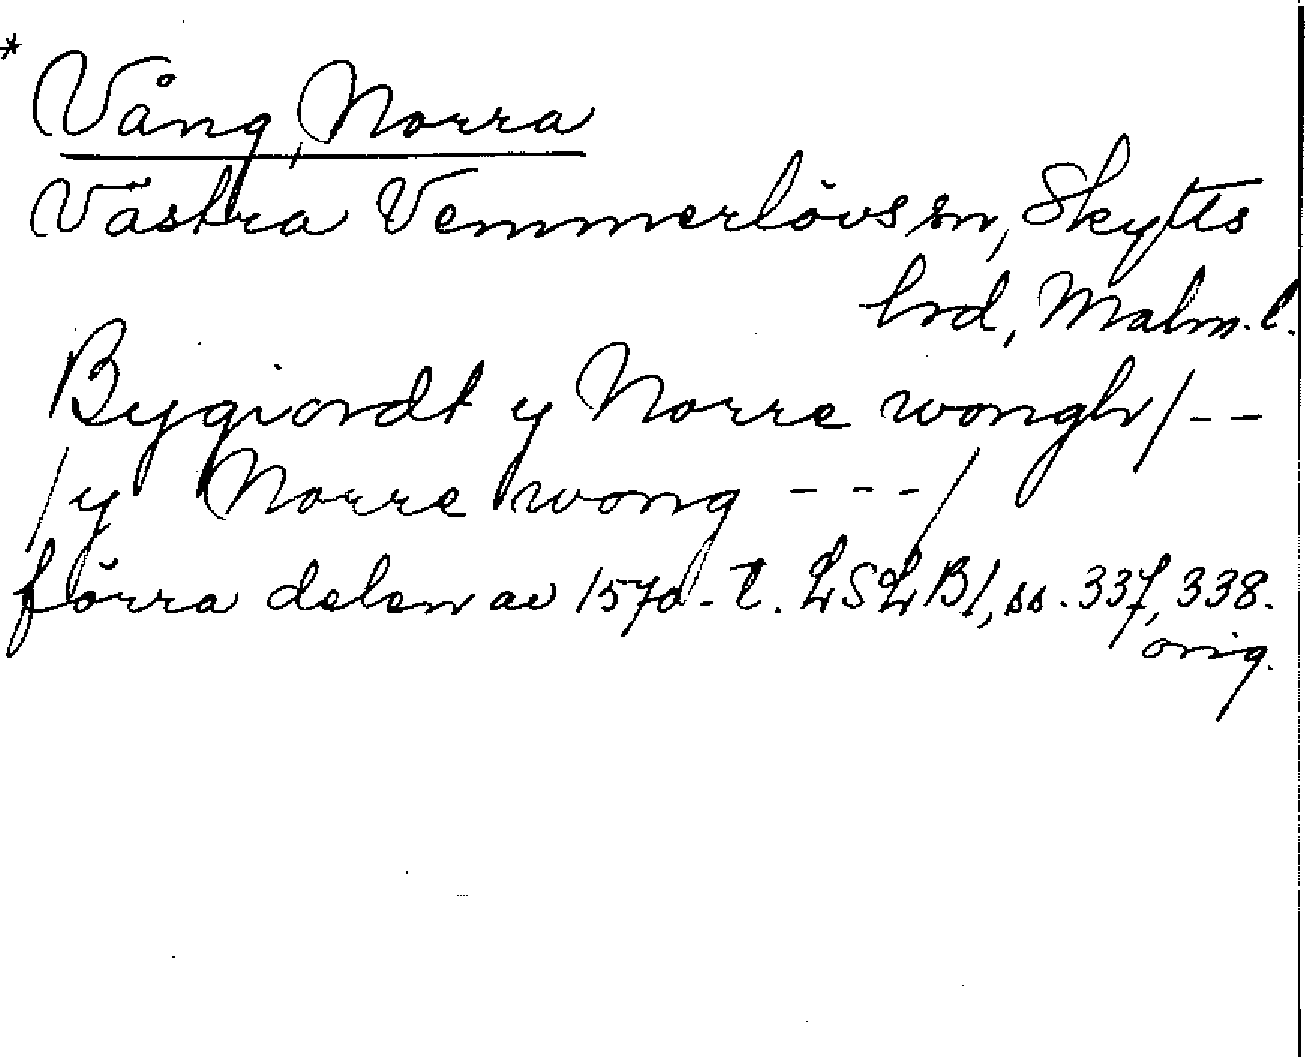 * Vång, Norra
Västra Vemmerlövs sn, Skytts
hrd, Malm. l.
Bygiordt y Norre wongh / - -
/ y Norre wong - - - /
förra delen av 1570-t. LSLB1, ss. 337, 338.
orig.